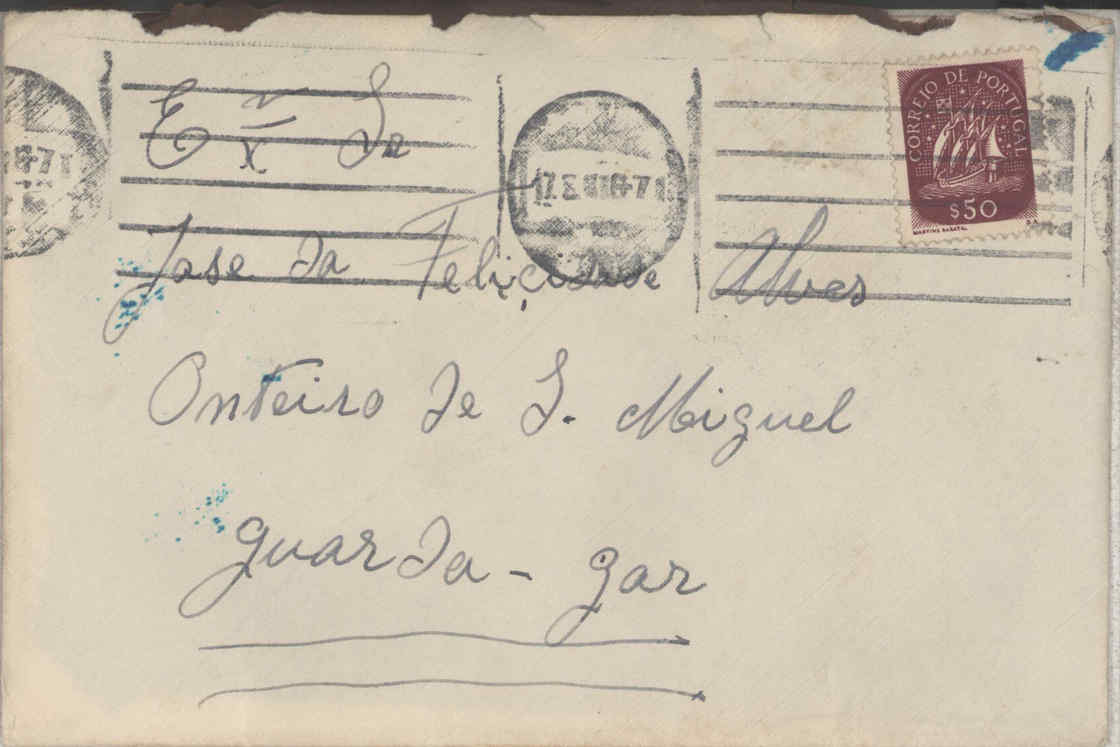 Ex Sr
José da Felicidade Alves
Onteiro de S. Miguel
Guarda - Gar
CORREIO DE PORTUGAL
$50
MARTINS BARATA